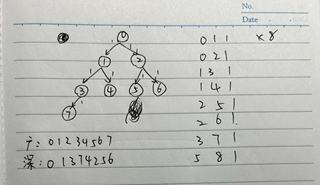 No.
Date
0
1 2
3 4 5 6
7
0 1 1 ×8
0 2 1
1 3 1
1 4 1
2 5 1
2 6 1
3 7 1
5 8 1
广: 0 1 2 3 4 5 6 7
深: 0 1 3 7 4 2 5 6